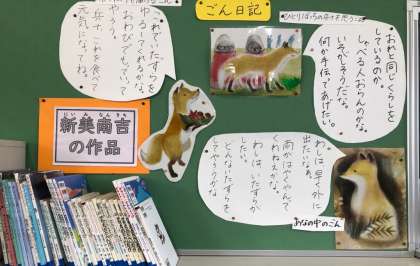 ごん日記
おれと同じくらしを
しているのか。
しゃべる人おらんのかな。
いそがしそうだな。
何か手伝ってあげたい。
これでいたずらを
ゆるしてくれるかな。
おわびでもっていって
やろう。
兵十、これを食べて
元気になってね。
新美南吉
の作品
わしは早く外に
出たいなあ。
雨がはやくやんで
くれねえかな。
わしは、いたずらが
したい。
どんないたずらを
してやろうかな
あなの中のごん